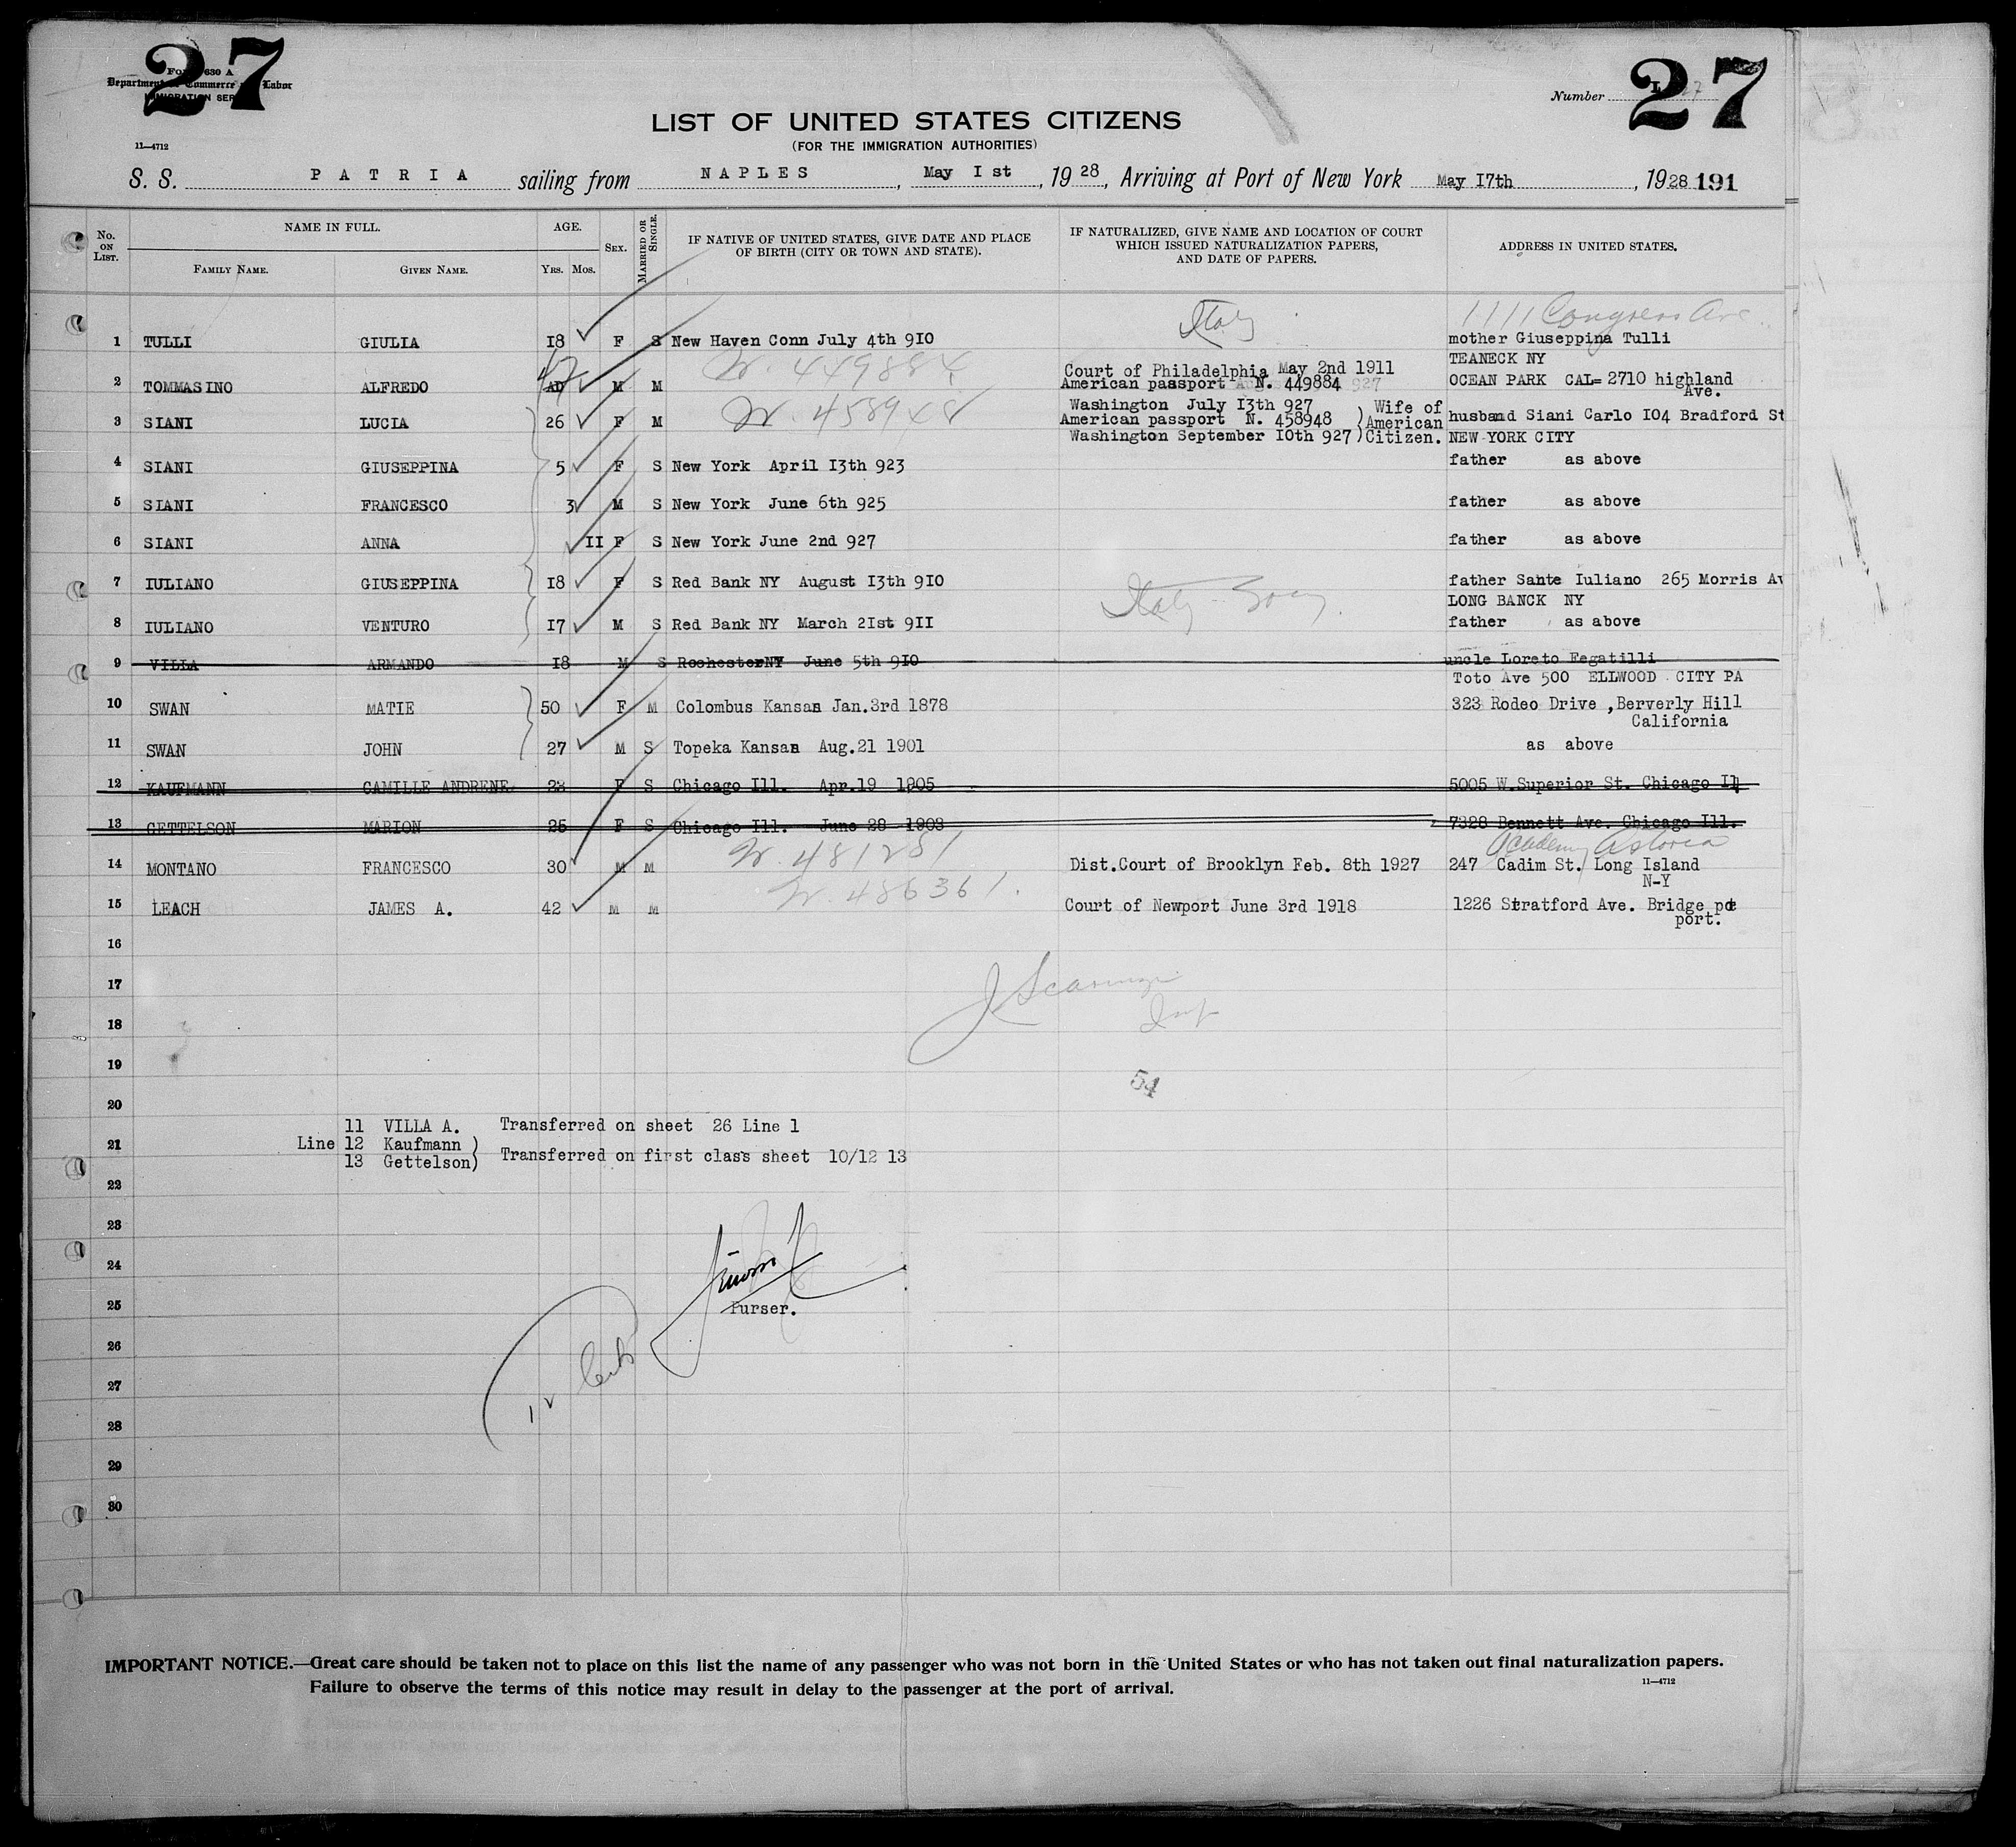 27
27
Form 630 A
Department of Commerce and Labor
IMMIGRATION SERVICE
11—4712
Number L 27
LIST OF UNITED STATES CITIZENS
(FOR THE IMMIGRATION AUTHORITIES)
S. S. PATRIA sailing from NAPLES, May Ist, 1928, Arriving at Port of New York May I7th, 1928 191
No. ON LIST. NAME IN FULL. FAMILY NAME. GIVEN NAME. AGE. YRS. MOS. SEX. MARRIED OR SINGLE. IF NATIVE OF UNITED STATES, GIVE DATE AND PLACE OF BIRTH (CITY OR TOWN AND STATE). IF NATURALIZED, GIVE NAME AND LOCATION OF COURT WHICH ISSUED NATURALIZATION PAPERS, AND DATE OF PAPERS. ADDRESS IN UNITED STATES.
Italy 1111 Congress Ave
1 TULLI GIULIA I8 F S New Haven Conn July 4th 9I0 mother Giuseppina Tulli
TEANECK NY
47 W. 449884 Court of Philadelphia May 2nd 1911
2 TOMMASINO ALFREDO AD M M American passport N. 449884 OCEAN PARK CAL= 2710 highland
Ave.
W. 458948 Washington July I3th 927
3 SIANI LUCIA 26 F M American passport N. 458948 ) Wife of American Citizen. husband Siani Carlo I04 Bradford St
Washington September I0th 927 ) NEW YORK CITY
4 SIANI GIUSEPPINA 5 F S New York April I3th 923 father as above
5 SIANI FRANCESCO 3 M S New York June 6th 925 father as above
6 SIANI ANNA II F S New York June 2nd 927 father as above
7 IULIANO GIUSEPPINA I8 F S Red Bank NY August I3th 9I0 Italy father Sante Iuliano 265 Morris Av
LONG BANCK NY
8 IULIANO VENTURO I7 M S Red Bank NY March 2Ist 9II father as above
9 VILLA ARMANDO I8 M S RochesterNY June 5th 9I0 uncle Loreto Fegatilli
Toto Ave 500 ELLWOOD CITY PA
10 SWAN MATIE 50 F M Colombus Kansas Jan.3rd 1878 323 Rodeo Drive ,Berverly Hill
California
11 SWAN JOHN 27 M S Topeka Kansas Aug.21 1901 as above
12 KAUFMANN CAMILLE ANDRENE 23 F S Chicago Ill. Apr.19 1905 5005 W.Superior St. Chicago Il
13 GETTELSON MARION 25 F S Chicago Ill. June 28 1903 7328 Bennett Ave. Chicago Ill.
W. 481251 Academy Astoria
14 MONTANO FRANCESCO 30 M M Dist.Court of Brooklyn Feb. 8th 1927 247 Cadim St. Long Island
N-Y
W. 486361.
15 LEACH JAMES A. 42 M M Court of Newport June 3rd 1918 1226 Stratford Ave. Bridge
port.
16
17
18
19
54
20
11 VILLA A. Transferred on sheet 26 Line 1
21 Line 12 Kaufmann )
13 Gettelson) Transferred on first class sheet 10/12 13
22
23
24
25 Purser.
26
27
28
29
30
IMPORTANT NOTICE.—Great care should be taken not to place on this list the name of any passenger who was not born in the United States or who has not taken out final naturalization papers.
Failure to observe the terms of this notice may result in delay to the passenger at the port of arrival.
11—4712